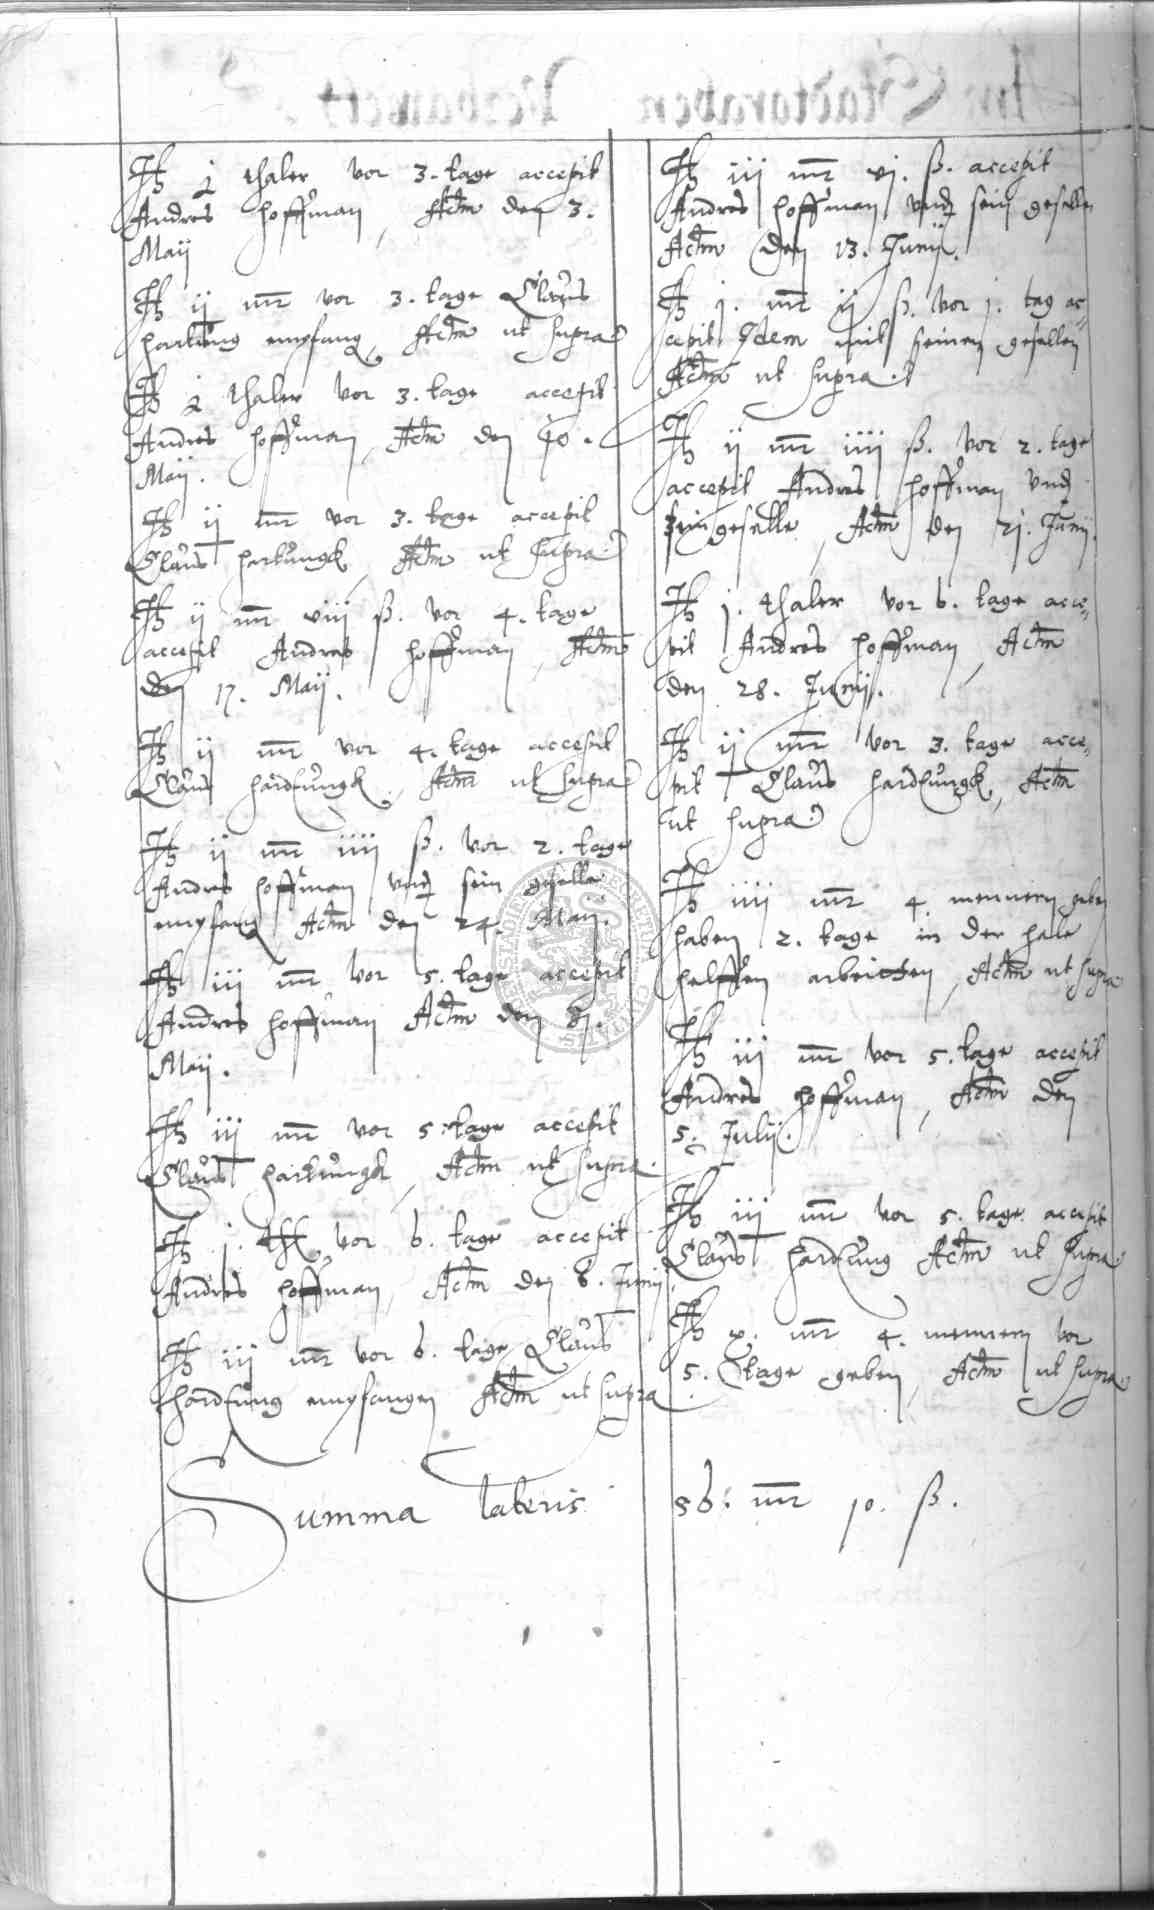 It 1 thaler vor 3. tage accepit
Andres Hoffman, Actm den 3.
Maij
It ij mr vor 3. tage Claus
Hartung empfang, Actm ut supra
It 1 thaler vor 3. tage accepit
Andres Hoffman, Actm den 10.
Maij.
It ij mr vor 3. tage accepit
Claus Hartungk, Actm ut supra
It ij mr viij ß. vor 4. tage
accepit Andres Hoffman, Actm
den 17. Maij.
It ij mr vor 4. tage accepit
Claus Hardtungk, Actm ut supra
It ij mr iiij ß. vor 2. tage
Andres Hoffman und sein geselle
empfang Actm den 24. Maij.
It iij mr vor 5. tage accepit
Andres Hoffman Actm den 31.
Maij.
It iij mr vor 5. tage accepit
Claus Hartungk, Actm ut supra.
It j. thl. vor 6. tage accepit
Andres Hoffman, Actm den 8. Junij
It iij mr vor 6. tage Claus
Hardtung empfangen Actm ut supra
Summa lateris
It iij mr vj. ß. accepit
Andres Hoffman und sein geselle
Actm den 13. Junij.
It j. mr ij ß. vor j. tag ac=
cepit Idem mit seinem gesellen
Actm ut supra.
It ij mr iiij ß. vor 2. tage
accepit Andres Hoffman und
sein geselle, Actm den 21. Junij.
It j. thaler vor 6. tage acce=
pit Andres Hoffman, Actm
den 28. Junij.
It ij mr vor 3. tage acce=
pit Claus Hardtungk, Actm
ut supra
It iiij mr 4. mennern geben
haben 2. tage in der
helffen arbeitten, Actm ut supra
It iij mr vor 5. tage accepit
Andres Hoffman, Actm den
5. Julij.
It iij mr vor 5. tage accepit
Claus Hardtung Actm ut supra
It x. mr 4. mennern vor
5. tage geben, Actm ut supra
56. mr 10. ß.